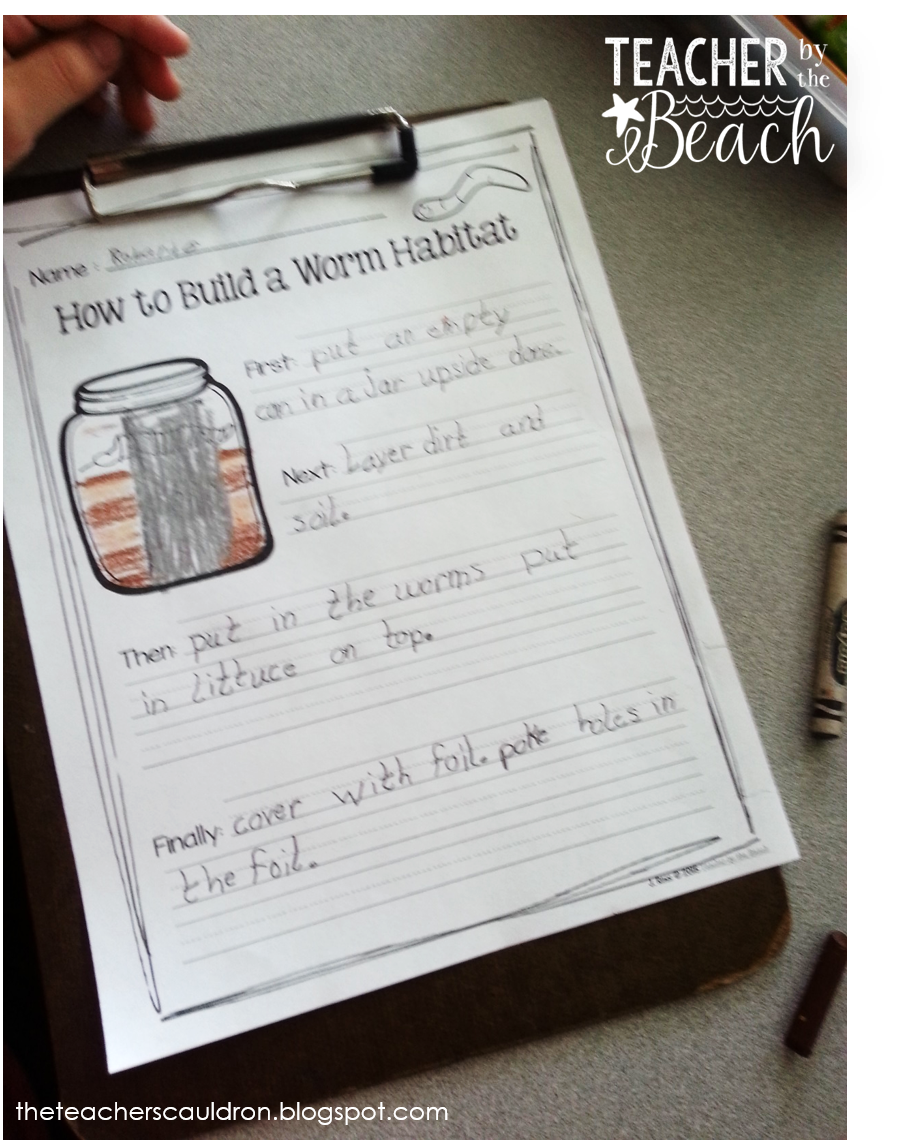 TEACHER by the
Beach
Name:
How to Build a Worm Habitat
First: put an empty
can in a Jar upside
Next: Layer dirt and
soil.
Then: put in the worms put
in Littuce on top.
Finally: cover with foil. poke holes in
the foil.
theteacherscauldron.blogspot.com